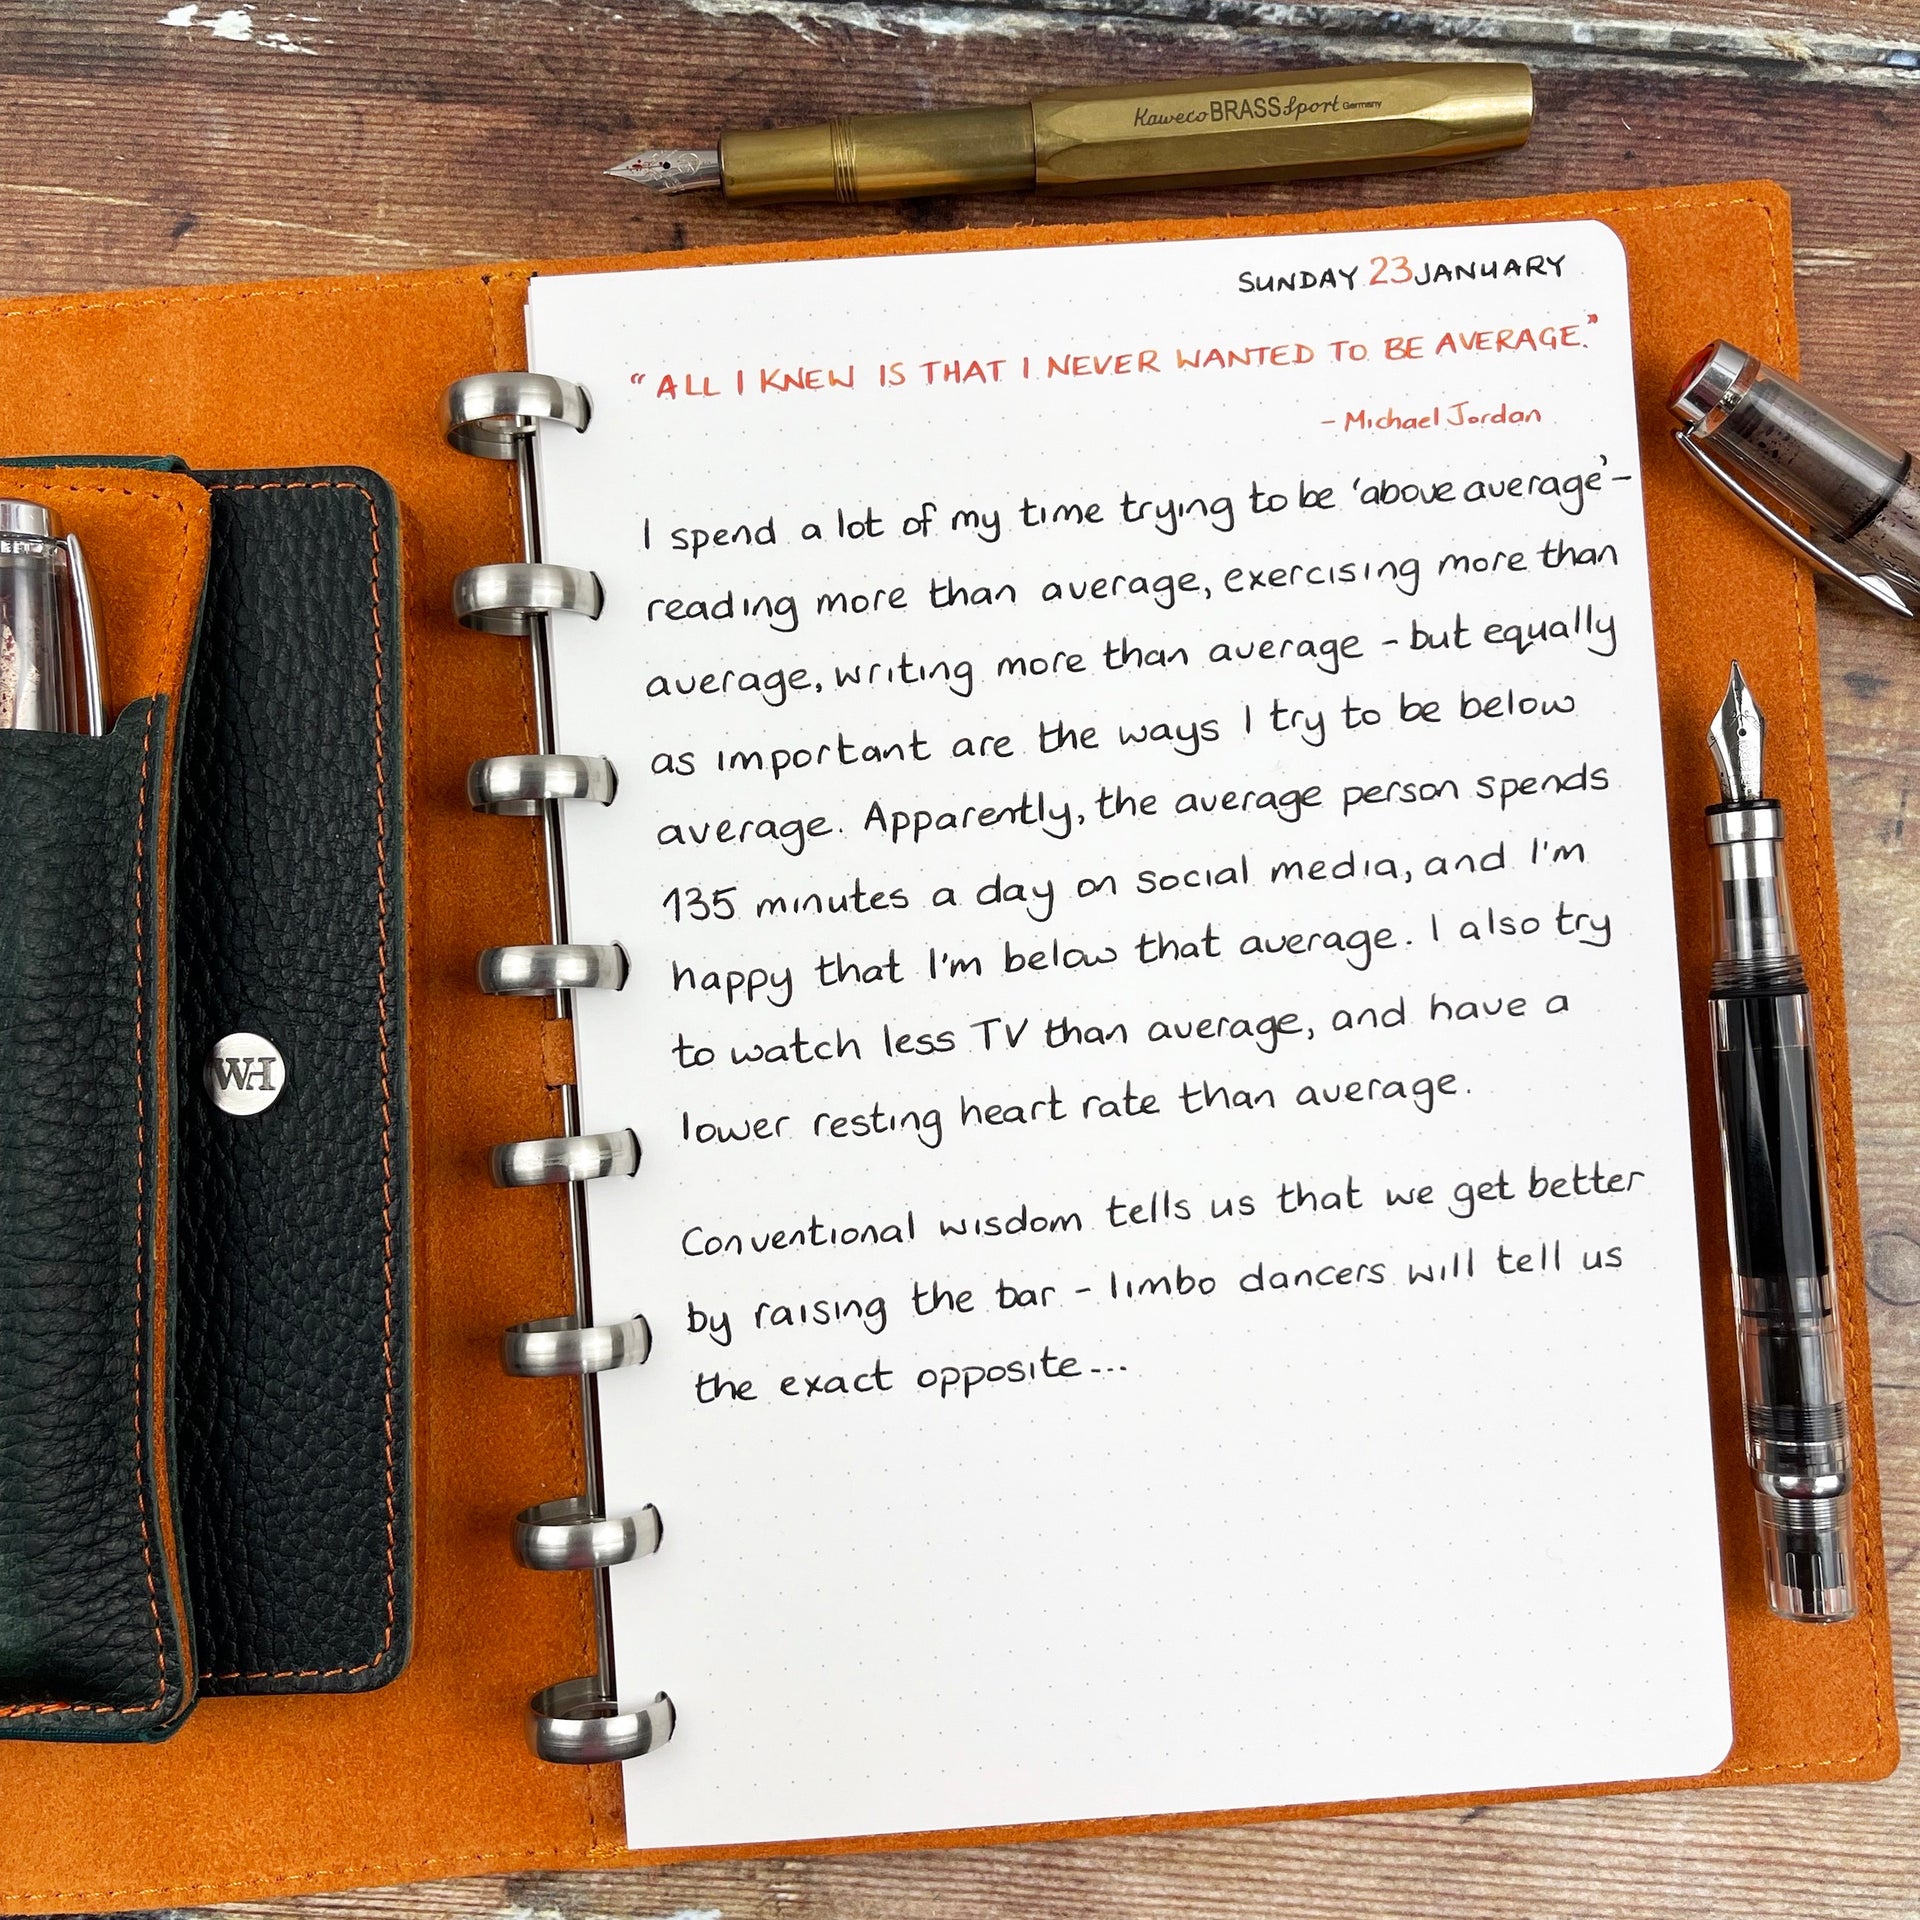 Kaweco BRASS Sport Germany
SUNDAY 23 JANUARY
"ALL I KNEW IS THAT I NEVER WANTED TO BE AVERAGE."
- Michael Jordan
I spend a lot of my time trying to be 'above average' -
reading more than average, exercising more than
average, writing more than average - but equally
as important are the ways I try to be below
average. Apparently, the average person spends
135 minutes a day on social media, and I'm
happy that I'm below that average. I also try
to watch less TV than average, and have a
lower resting heart rate than average.
Conventional wisdom tells us that we get better
by raising the bar - limbo dancers will tell us
the exact opposite...
WH